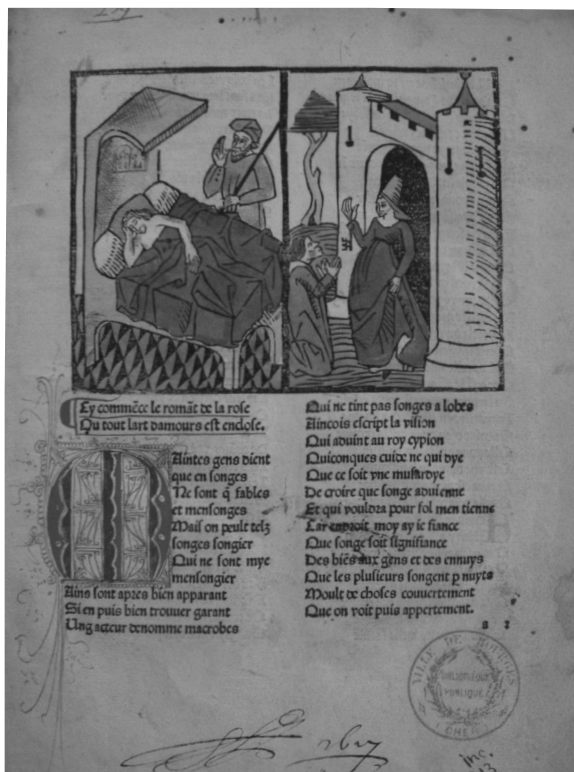 Cy commẽce le romãt de la rose
Ou tout lart damours est enclose.
Maintes gens dient
que en songes
Ne sont q̃ fables
et mensonges
Mais on peult telz
songes songier
Qui ne sont mye
mensongier
Ains sont apres bien apparant
Si en puis bien trouuer garant
Ung acteur denomme macrobes
Qui ne tint pas songes a lobes
Aincois escript la vision
Qui aduint au roy cypion
Quiconques cuide ne qui dye
Que ce soit vne musardye
De croire que songe aduienne
Et qui vouldra pour fol men tienne
Car endroit moy ay ie fiance
Que songe soit signifiance
Des biẽs aux gens et des ennuys
Que les plusieurs songent p nuyts
Moult de choses couuertement
Que on voit puis appertement.
VILLE DE BOURGES
BIBLIOTHEQUE
PUBLIQUE
CHER
inc.